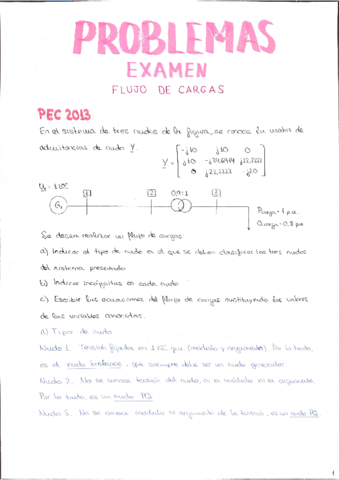 PROBLEMAS
EXAMEN
FLUJO DE CARGAS
PEC 2013
En el sistema de tres nudos de la figura, se conoce la matriz de
admitancias de nudo Y.
Y = [-j10 j10 0
j10 -j34,6914 j22,2222
0 j22,2222 -j20]
[1] [2] 0,9:1 [3]
G1
Pcarga = 1 p.u.
Qcarga = 0,8 p.u.
Se desea realizar un flujo de cargas:
a) Indicar el tipo de nudo en el que se deben clasificar los tres nudos
del sistema presentado
b) Indicar incógnitas en cada nudo
c) Escribir las ecuaciones del flujo de cargas sustituyendo los valores
de las variables conocidas.
a) Tipo de nudo
Nudo 1. Tensión fijada en p.u. (módulo y argumento). Por lo tanto,
es el nudo que siempre debe ser un nudo generador
Nudo 2. No se conoce tensión del nudo, ni en módulo ni en argumento.
Por lo tanto, es un nudo PQ
Nudo 3. No se conoce módulo ni argumento de la tensión, es un nudo PQ.
1